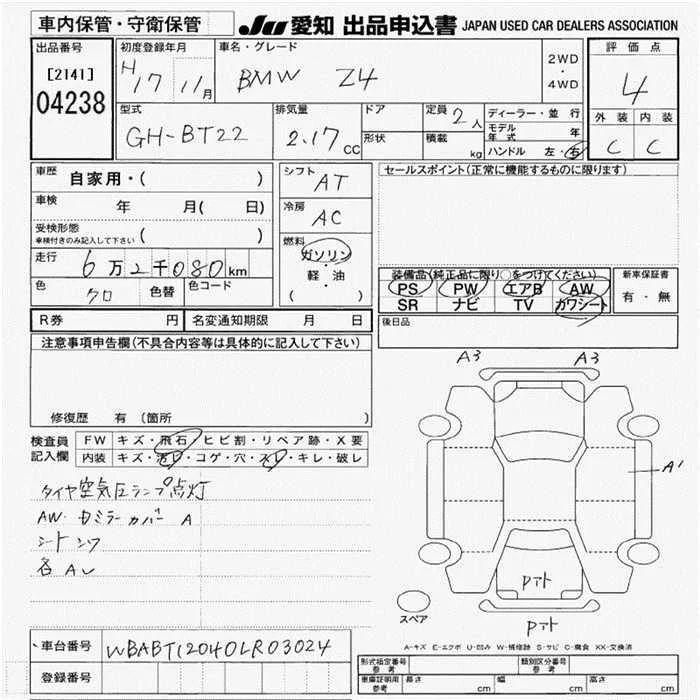 車内保管・守衛保管
JU 愛知 出品申込書 JAPAN USED CAR DEALERS ASSOCIATION
出品番号
[2141]
04238
初度登録年月
H17 11月
車名・グレード
BMW Z4
2WD
・
4WD
評価点
4
外装 内装
C C
型式
GH-BT22
排気量
2.17cc
ドア
形状
定員 2人
積載 kg
ディーラー・並行
モデル年式 年
ハンドル 左・右
車歴
自家用・( )
車検
年 月( 日)
受検形態
車検付きのみ記入して下さい ( )
走行
6万2千080km
色
クロ
色替
色コード
シフト
AT
冷房
AC
燃料
ガソリン
・
軽・油
( )
セールスポイント(正常に機能するものに限ります)
装備品(純正品に限り○をつけてください)
PS PW エアB AW
SR ナビ TV カワシート
新車保証書
有・無
後日品
R券 円
名変通知期限 月 日
注意事項申告欄(不具合内容等は具体的に記入して下さい)
修復歴 有 (箇所 )
検査員
記入欄
FW キズ・飛石・ヒビ割・リペア跡・X要
内装 キズ・汚レ・コゲ・穴・スレ・キレ・破レ
タイヤ空気圧ランプ点灯
AW・ ミラーカバー A
シート シワ
各AU
A3 A3
A1
Pアト
Pアト
スペア
A-キズ E-エクボ U-凹み W-補修跡 S-サビ C-腐食 XX-交換済
車台番号
WBABT12040LR03024
登録番号
型式指定番号
参考
類別区分番号
参考
車庫証明用
参考
長さ cm 幅 cm 高さ cm